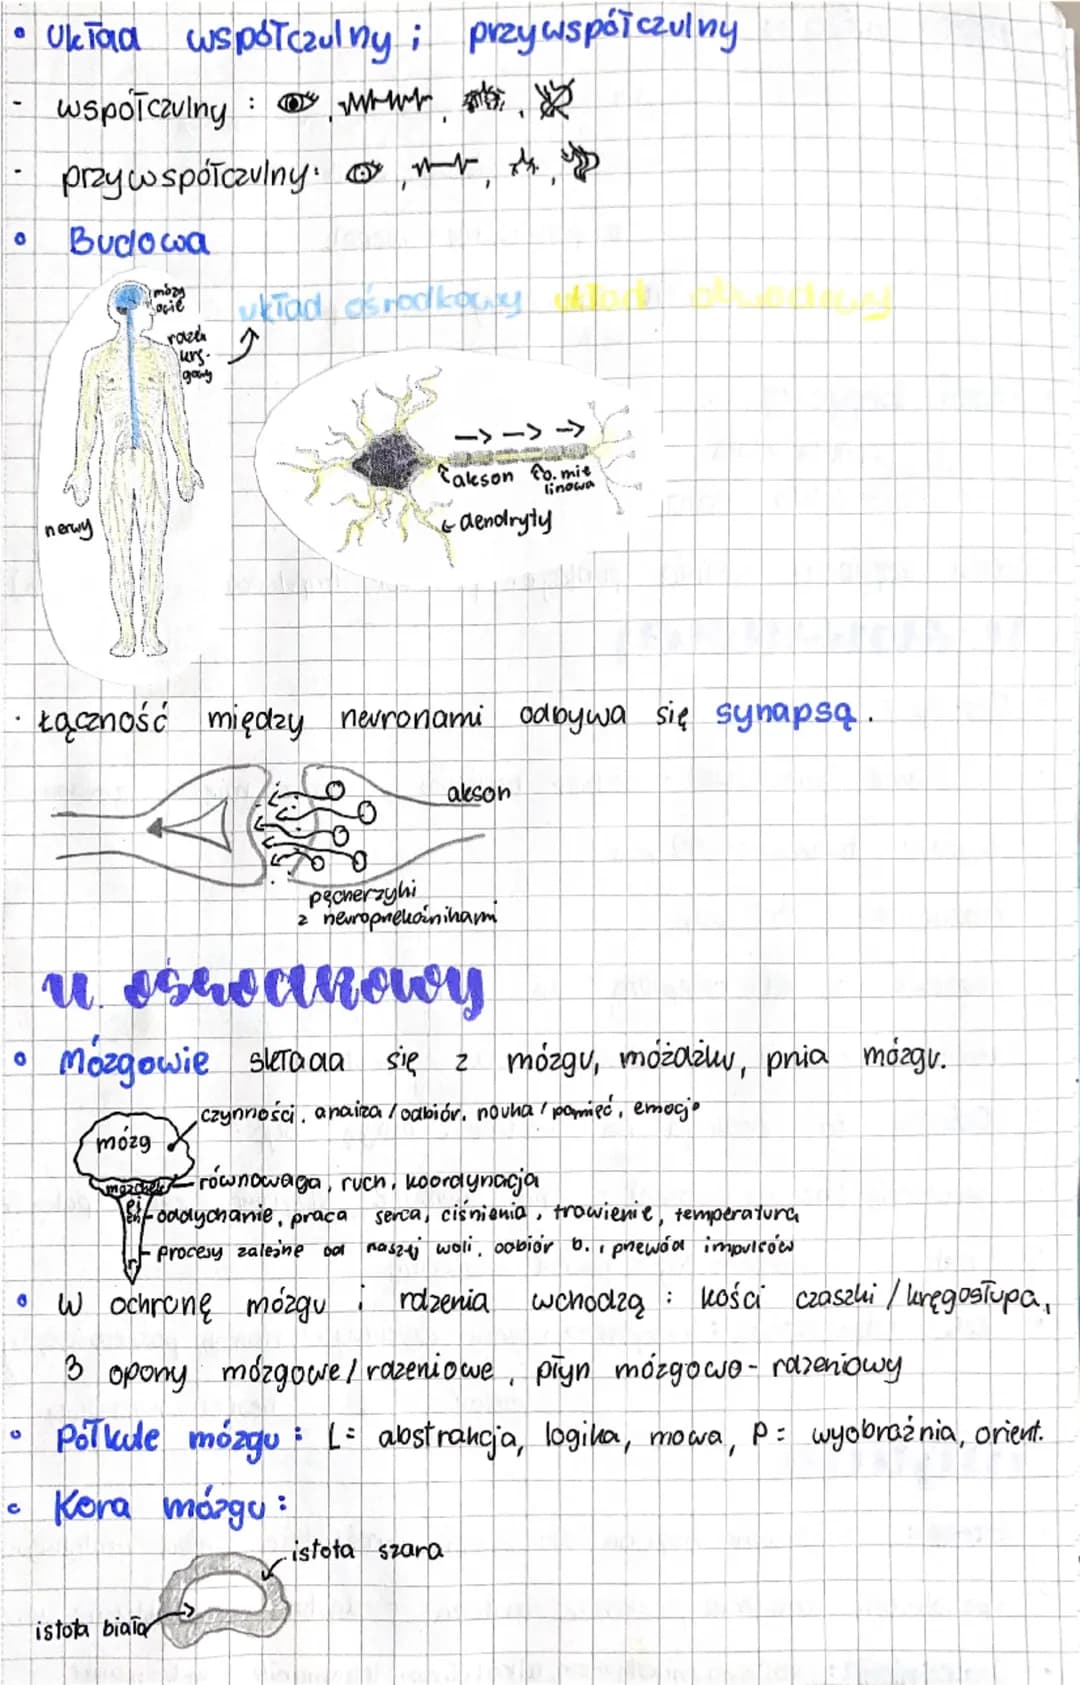 • Układ współczulny i przywspółczulny
- współczulny :
- przywspółczulny:
• Budowa
mózg
owie
rdzeń
krę-
gowy
układ ośrodkowy układ obwodowy
-> -> ->
akson o. mie
linowa
dendryty
nerwy
· Łączność między neuronami odbywa się synapsą.
akson
pęcherzyki
z neuroprzekaźnikami
u. ośrodkowy
• Mózgowie składa się z mózgu, móżdżku, pnia mózgu.
czynności, analiza / odbiór, nauka / pamięć, emocje
mózg
móżdżek
równowaga, ruch, koordynacja
pień
oddychanie, praca serca, ciśnienia, trawienie, temperatura
procesy zależne od naszej woli, odbiór b. i przewód impulsów
• W ochronę mózgu i rdzenia wchodzą : kości czaszki / kręgosłupa,
3 opony mózgowe / rdzeniowe, płyn mózgowo - rdzeniowy
• Półkule mózgu : L = abstrakcja, logika, mowa, P = wyobraźnia, orient.
• Kora mózgu :
istota szara
istota biała